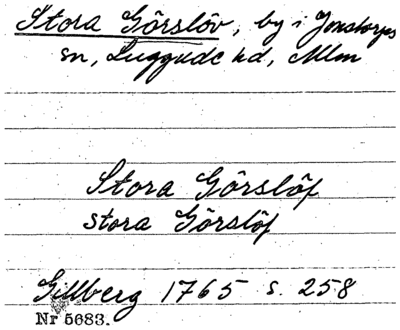 Stora Görslöv, by i Jonstorps
sn, Luggude hd, Mlm
Stora Görslöf
stora Görslöf
Gillberg 1765 s. 258
Nr 5683.